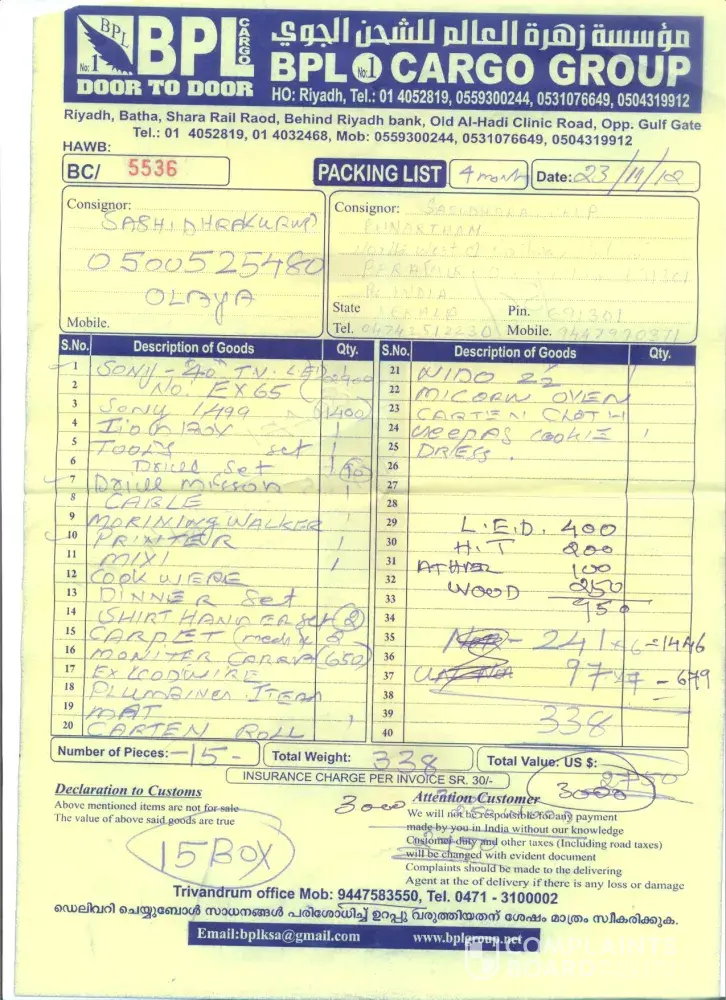 BPL
No: 1
BPL CARGO
DOOR TO DOOR
مؤسسة زهرة العالم للشحن الجوي
BPL No:1 CARGO GROUP
HO: Riyadh, Tel.: 01 4052819, 0559300244, 0531076649, 0504319912
Riyadh, Batha, Shara Rail Raod, Behind Riyadh bank, Old Al-Hadi Clinic Road, Opp. Gulf Gate
Tel.: 01 4052819, 01 4032468, Mob: 0559300244, 0531076649, 0504319912
HAWB:
BC/ 5536
PACKING LIST
4 month
Date: 23/11/12
Consignor:
SASHIDHRAKURUP
0500525480
OLAYA
Mobile.
Consignor:
PUNARTHAM
INDIA
State
Pin. 691301
Tel. 04742512230 Mobile. 9447970371
S.No. Description of Goods Qty.
1 SONY - 40" TN. LED 2400
2 No. EX65
3 SONY 1499 1400
4 Iron BOX 1
5 TOOLS set 1
6 Drill Set 1 90
7 Drill Micson 1
8 CABLE
9 MORINING WALKER 1
10 PRINTER 1
11 MIXI 1
12 COOK WERE
13 DINNER Set
14 SHIRT HANGER set 2
15 CARPET
16 MONITER 650
17
18 PLUMBINES ITEM
19 MAT
20 CARTEN ROLL 1
S.No. Description of Goods Qty.
21 NIDO 22
22 MICORN OVEN
23 CARTEN CLOTH
24 GEEPAS COOKIE 1
25 DRESS.
26
27
28
29 L.E.D. 400
30 H.T 200
31 100
32 WOOD 250
33 950
34
35 241 x 6 = 1446
36
37 97 x 7 - 679
38
39 338
40
Number of Pieces: -15-
Total Weight: 338
Total Value: US $: 2750
3000
INSURANCE CHARGE PER INVOICE SR. 30/-
Declaration to Customs
Above mentioned items are not for sale
The value of above said goods are true
3000
15 BOX
Attention Customer
We will not be responsible for any payment
made by you in India without our knowledge
Customer duty and other taxes (Including road taxes)
will be changed with evident document
Complaints should be made to the delivering
Agent at the of delivery if there is any loss or damage
Trivandrum office Mob: 9447583550, Tel. 0471 - 3100002
ഡെലിവറി ചെയ്യുബോൾ സാധനങ്ങൾ പരിശോധിച്ച് ഉറപ്പു വരുത്തിയതിന് ശേഷം മാത്രം സ്വീകരിക്കുക.
Email:bplksa@gmail.com www.bplgroup.net
COMPLAINTS
BOARD